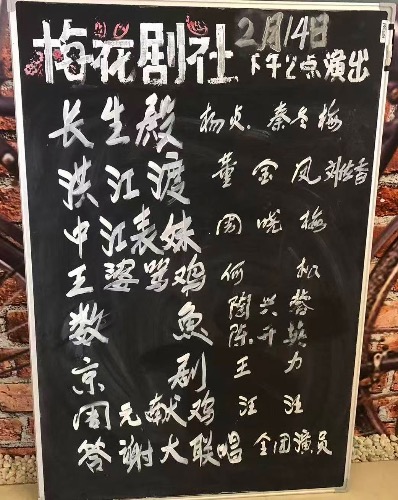 梅花剧社 2月14日
下午2点演出
长生殿 杨贞. 秦冬梅
洪江渡 董金凤 刘
中江表妹 周晓梅
王婆骂鸡 何松
陶兴蓉
数鱼 陈开英
京剧 王力
周元献鸡 汪洼
答谢大联唱 全团演员